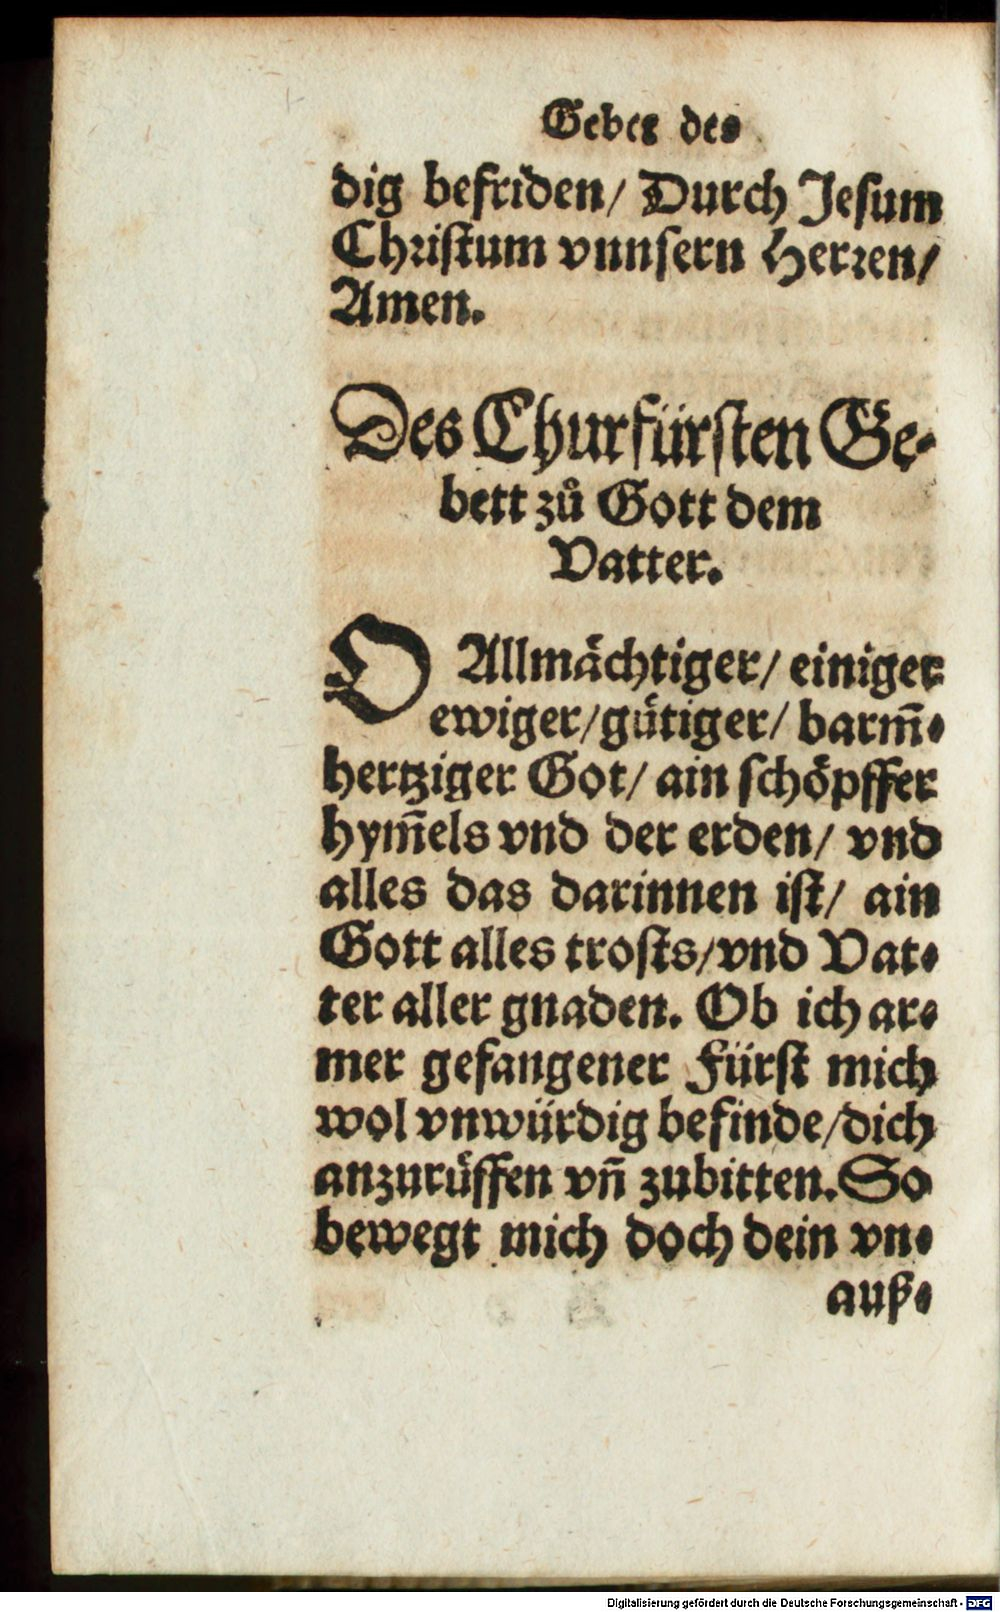 Gebet des
dig befriden/ Durch Jesum
Christum vnnsern Herren/
Amen.
Des Churfürsten Ge-
bett zů Gott dem
Vatter.
O Allmächtiger/ einiger
ewiger/gütiger/ barm̃-
hertziger Got/ ain schöpffer
hym̃els vnd der erden/ vnd
alles das darinnen ist/ ain
Gott alles trosts/vnd Vat-
ter aller gnaden. Ob ich ar-
mer gefangener Fürst mich
wol vnwürdig befinde/dich
anzurüffen vñ zubitten. So
bewegt mich doch dein vn-
auß-
Digitalisierung gefördert durch die Deutsche Forschungsgemeinschaft - DFG